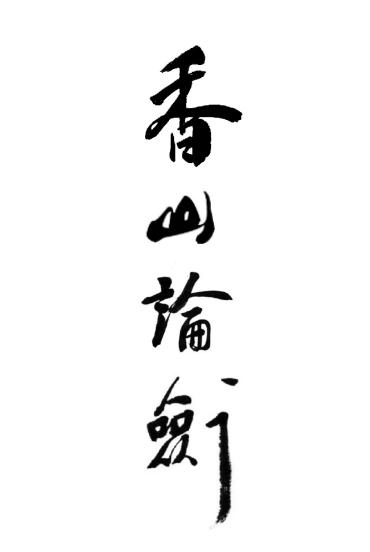 香山論劍